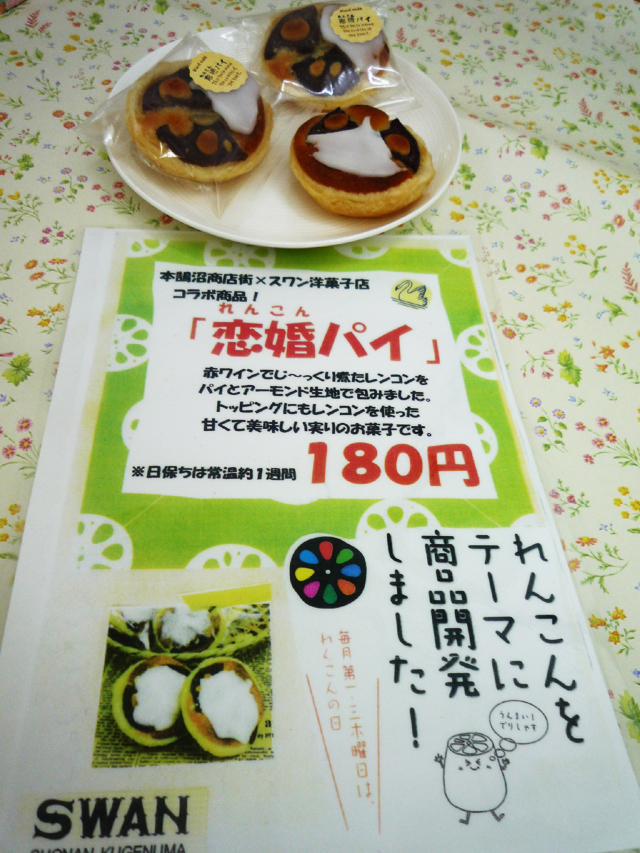 本鵠沼商店街×スワン洋菓子店
コラボ商品！
れんこん
「恋婚パイ」
赤ワインでじ～っくり煮たレンコンを
パイとアーモンド生地で包みました。
トッピングにもレンコンを使った
甘くて美味しい実りのお菓子です。
※日保ちは常温約1週間
180円
れんこんを
テーマに
商品開発
しました！
毎月第一・三木曜日は、
れんこんの日
うんまい！
でりしゃす
SWAN
SHONAN KUGENUMA
恋婚パイ
恋婚パイ